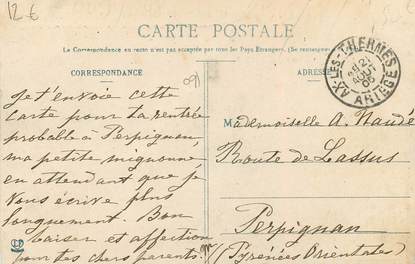 12 €
CARTE POSTALE
La Correspondance au recto n'est pas acceptée par tous les Pays Étrangers. (Se renseigner
CORRESPONDANCE
ADRES
AX-LES-THERMES
21
AOUT
ARIÈGE
Je t'envoie cette
carte pour ta rentrée
probable à Perpignan,
ma petite mignonne,
en attendant que je
vous écrive plus
longuement. Bon
baiser et affection
pour tes chers parents.
Mademoiselle A. Naudé
Route de Lassus
Perpignan
(Pyrénées Orientales)